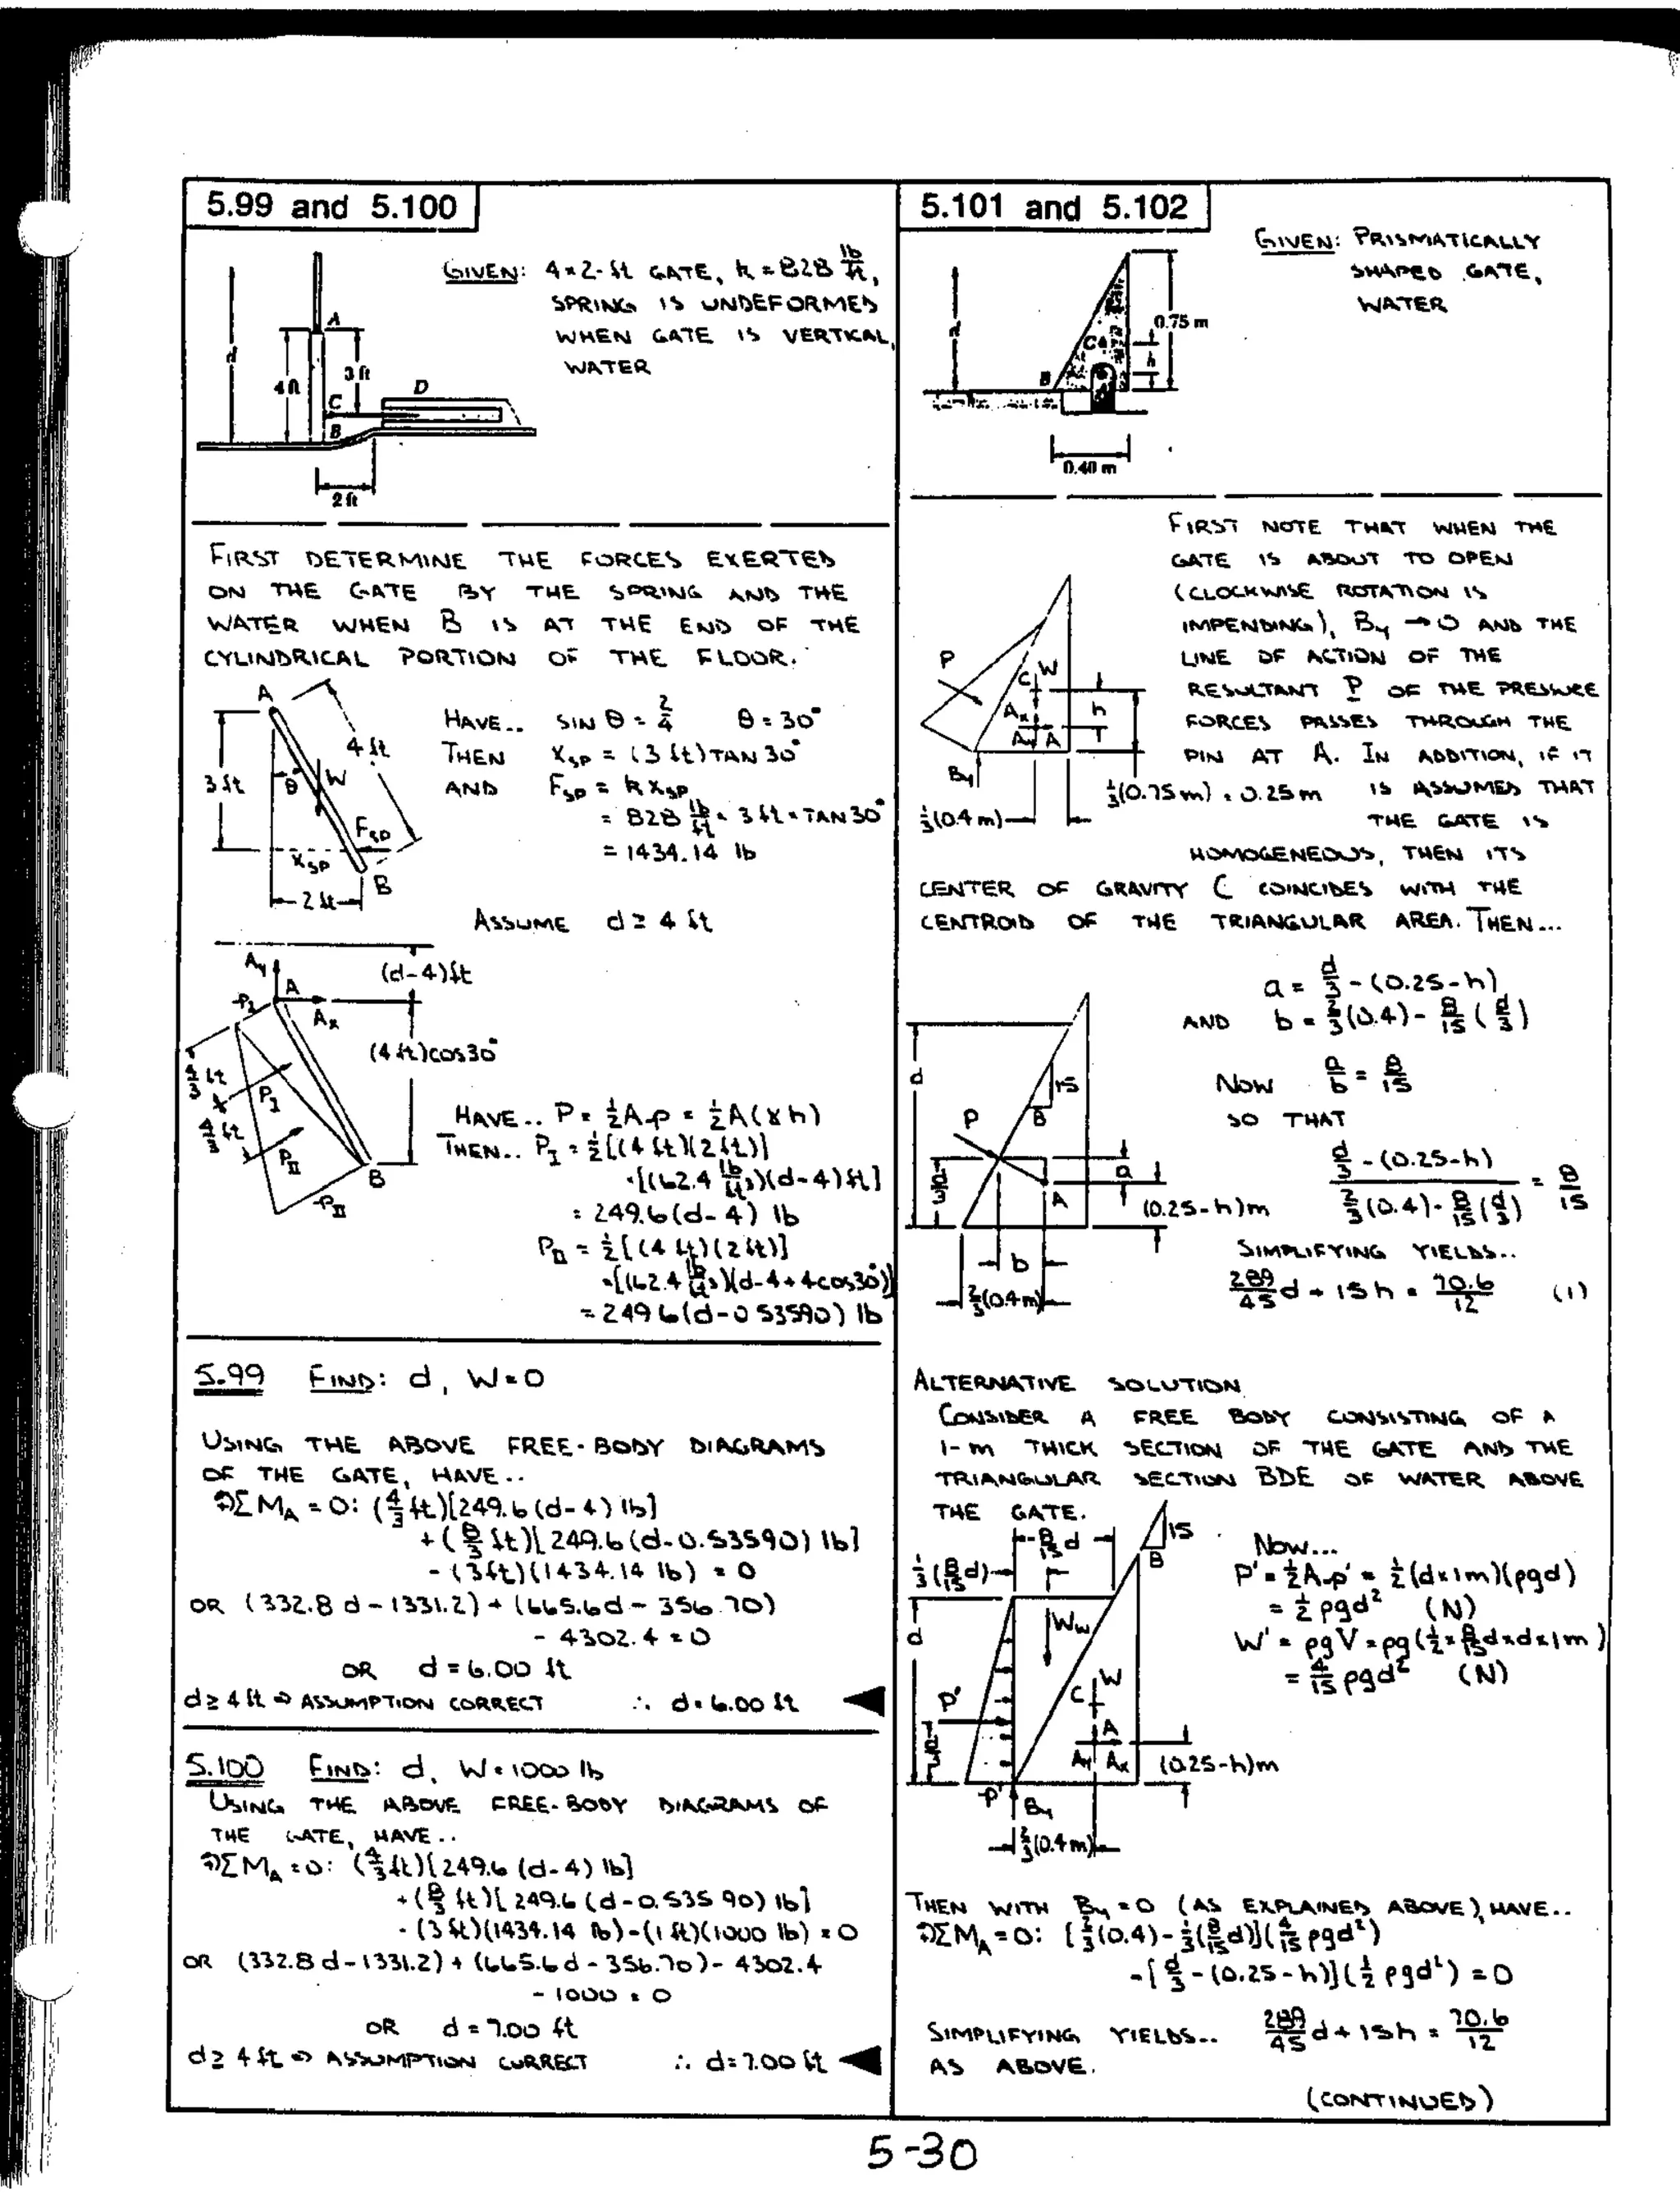 5.99 and 5.100
GIVEN: 4×2-ft GATE, k = 828 lb/ft,
SPRING IS UNDEFORMED
WHEN GATE IS VERTICAL,
WATER
A
d
4 ft
3 ft
D
C
B
2 ft
FIRST DETERMINE THE FORCES EXERTED
ON THE GATE BY THE SPRING AND THE
WATER WHEN B IS AT THE END OF THE
CYLINDRICAL PORTION OF THE FLOOR.
A
4 ft
3 ft
θ
W
F_SP
x_SP
B
2 ft
HAVE.. SIN θ = 2/4 θ = 30°
THEN x_SP = (3 ft) TAN 30°
AND F_SP = k x_SP
= 828 lb/ft × 3 ft × TAN 30°
= 1434.14 lb
ASSUME d ≥ 4 ft
(d-4) ft
A_y
A
A_x
P_I
(4 ft) cos 30°
4/3 ft
P_I
4/3 ft
P_II
B
P_II
HAVE.. P = ½Ap = ½A(γh)
THEN.. P_I = ½[(4 ft)(2 ft)]
×[(62.4 lb/ft³)(d-4) ft]
= 249.6(d-4) lb
P_II = ½[(4 ft)(2 ft)]
×[(62.4 lb/ft³)(d-4+4cos30°)]
= 249.6(d-0.53590) lb
5.99 FIND: d, W=0
USING THE ABOVE FREE-BODY DIAGRAMS
OF THE GATE, HAVE..
ΣM_A = 0: (4/3 ft)[249.6(d-4) lb]
+(8/3 ft)[249.6(d-0.53590) lb]
-(3 ft)(1434.14 lb) = 0
OR (332.8 d - 1331.2) + (665.6d - 356.70)
- 4302.4 = 0
OR d = 6.00 ft
d ≥ 4 ft ⇒ ASSUMPTION CORRECT ∴ d = 6.00 ft ◀
5.100 FIND: d, W = 1000 lb
USING THE ABOVE FREE-BODY DIAGRAMS OF
THE GATE, HAVE..
ΣM_A = 0: (4/3 ft)[249.6 (d-4) lb]
+(8/3 ft)[249.6 (d-0.53590) lb]
-(3 ft)(1434.14 lb)-(1 ft)(1000 lb) = 0
OR (332.8 d - 1331.2) + (665.6 d - 356.70) - 4302.4
- 1000 = 0
OR d = 7.00 ft
d ≥ 4 ft ⇒ ASSUMPTION CORRECT ∴ d = 7.00 ft ◀
5.101 and 5.102
GIVEN: PRISMATICALLY
SHAPED GATE,
WATER
d
0.75 m
C
h
B
0.40 m
FIRST NOTE THAT WHEN THE
GATE IS ABOUT TO OPEN
(CLOCKWISE ROTATION IS
IMPENDING), B_y → 0 AND THE
LINE OF ACTION OF THE
RESULTANT P OF THE PRESSURE
FORCES PASSES THROUGH THE
PIN AT A. IN ADDITION, IF IT
IS ASSUMED THAT
THE GATE IS
HOMOGENEOUS, THEN ITS
CENTER OF GRAVITY C COINCIDES WITH THE
CENTROID OF THE TRIANGULAR AREA. THEN...
P
W
C
A_x
h
A_y A
B_y
⅓(0.75 m) = 0.25 m
⅓(0.4 m)
a = d/3 - (0.25-h)
AND b = ⅔(0.4) - 8/15 (d/3)
NOW a/b = 8/15
SO THAT
(d/3 - (0.25-h)) / (⅔(0.4) - 8/15(d/3)) = 8/15
SIMPLIFYING YIELDS..
289/45 d + 15h = 70.6/12 (1)
d
15
8
P
a
d/3
A
(0.25-h)m
b
⅔(0.4m)
ALTERNATIVE SOLUTION
CONSIDER A FREE BODY CONSISTING OF A
1-m THICK SECTION OF THE GATE AND THE
TRIANGULAR SECTION BDE OF WATER ABOVE
THE GATE.
8/15 d
15
8
⅓(8/15 d)
d
W_w
W
C
P'
A
d/3
A_y A_x
(0.25-h)m
P'
B_y
⅔(0.4m)
NOW...
P' = ½Ap' = ½(d×1m)(ρgd)
= ½ρgd² (N)
W' = ρgV = ρg(½×8/15 d×d×1m)
= 4/15 ρgd² (N)
THEN WITH B_y = 0 (AS EXPLAINED ABOVE), HAVE..
ΣM_A = 0: [⅔(0.4) - ⅓(8/15 d)](4/15 ρgd²)
-[d/3 - (0.25-h)](½ ρgd²) = 0
SIMPLIFYING YIELDS.. 289/45 d + 15h = 70.6/12
AS ABOVE.
(CONTINUED)
5-30